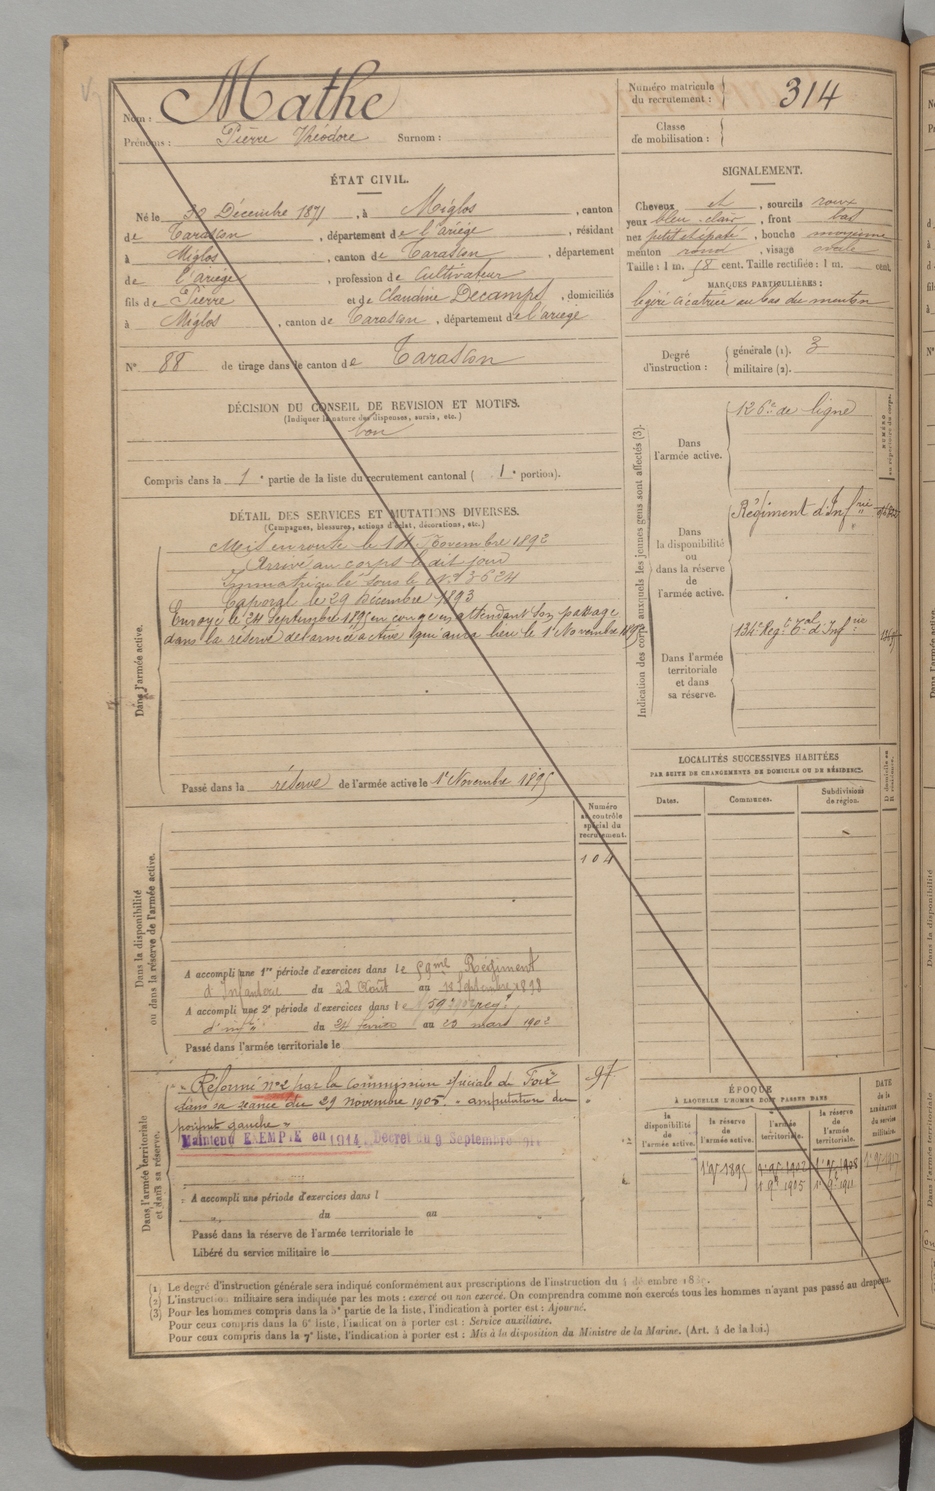 Nom : Mathe
Prénoms : Pierre Théodore Surnom :
Numéro matricule du recrutement : 314
Classe de mobilisation :
ÉTAT CIVIL.
Né le 30 Décembre 1871, à Miglos, canton
de Tarascon, département de l'ariège, résidant
à Miglos, canton de Tarascon, département
de l'ariège, profession de Cultivateur
fils de Pierre et de Claudine Decamps, domiciliés
à Miglos, canton de Tarascon, département de l'ariège
N° 88 de tirage dans le canton de Tarascon
SIGNALEMENT.
Cheveux et, sourcils roux
yeux bleu clair, front bas
nez petit et épaté, bouche moyenne
menton rond, visage ovale
Taille : 1 m. 58 cent. Taille rectifiée : 1 m. cent.
MARQUES PARTICULIÈRES :
légère cicatrice au bas du menton
Degré d'instruction : générale (1). 3
militaire (2).
DÉCISION DU CONSEIL DE REVISION ET MOTIFS.
(Indiquer la nature des dispenses, sursis, etc.)
bon
Compris dans la 1e partie de la liste du recrutement cantonal (1e portion).
DÉTAIL DES SERVICES ET MUTATIONS DIVERSES.
(Campagnes, blessures, actions d'éclat, décorations, etc.)
Dans l'armée active.
Mis en route le 14 Novembre 1892
Arrivé au corps le dit jour
Immatriculé sous le N° 3624
Caporal le 29 Décembre 1893
Envoyé le 24 Septembre 1895 en congé en attendant son passage
dans la réserve de l'armée active qui aura lieu le 1er Novembre 1895
Passé dans la réserve de l'armée active le 1er Novembre 1895
Indication des corps auxquels les jeunes gens sont affectés (3).
Dans l'armée active.
126e de ligne
Dans la disponibilité ou dans la réserve de l'armée active.
Régiment d'Infrie
Dans l'armée territoriale et dans sa réserve.
134e Regt Tal d'Infrie
LOCALITÉS SUCCESSIVES HABITÉES
PAR SUITE DE CHANGEMENTS DE DOMICILE OU DE RÉSIDENCE.
Dates. Communes. Subdivisions de région.
Dans la disponibilité ou dans la réserve de l'armée active.
Numéro au contrôle spécial du recrutement.
104
A accompli une 1re période d'exercices dans le 59me Régiment
d'Infanterie du 22 Août au 18 Septembre 1898
A accompli une 2e période d'exercices dans le 59 regt
d'inf du 24 février au 23 mars 1902
Passé dans l'armée territoriale le
Dans l'armée territoriale et dans sa réserve.
Réformé n°2 par la Commission spéciale de Foix
dans sa séance du 29 novembre 1905. « amputation du
poignet gauche »
Maintenu EXEMPTÉ en 1914. Décret du 9 Septembre 1914
A accompli une période d'exercices dans l
du au
Passé dans la réserve de l'armée territoriale le
Libéré du service militaire le
ÉPOQUE
À LAQUELLE L'HOMME DOIT PASSER DANS
la disponibilité de l'armée active. la réserve de l'armée active. l'armée territoriale. la réserve de l'armée territoriale.
DATE de la LIBÉRATION du service militaire.
1er 9bre 1895 1er 9bre 1902 1er 9bre 1908
1er 9bre 1905 1er 9bre 1911
(1) Le degré d'instruction générale sera indiqué conformément aux prescriptions de l'instruction du 4 décembre
(2) L'instruction militaire sera indiquée par les mots : exercé ou non exercé. On comprendra comme non exercés tous les hommes n'ayant pas passé au drapeau.
(3) Pour les hommes compris dans la 5e partie de la liste, l'indication à porter est : Ajourné.
Pour ceux compris dans la 6e liste, l'indication à porter est : Service auxiliaire.
Pour ceux compris dans la 7e liste, l'indication à porter est : Mis à la disposition du Ministre de la Marine. (Art. 4 de la loi.)